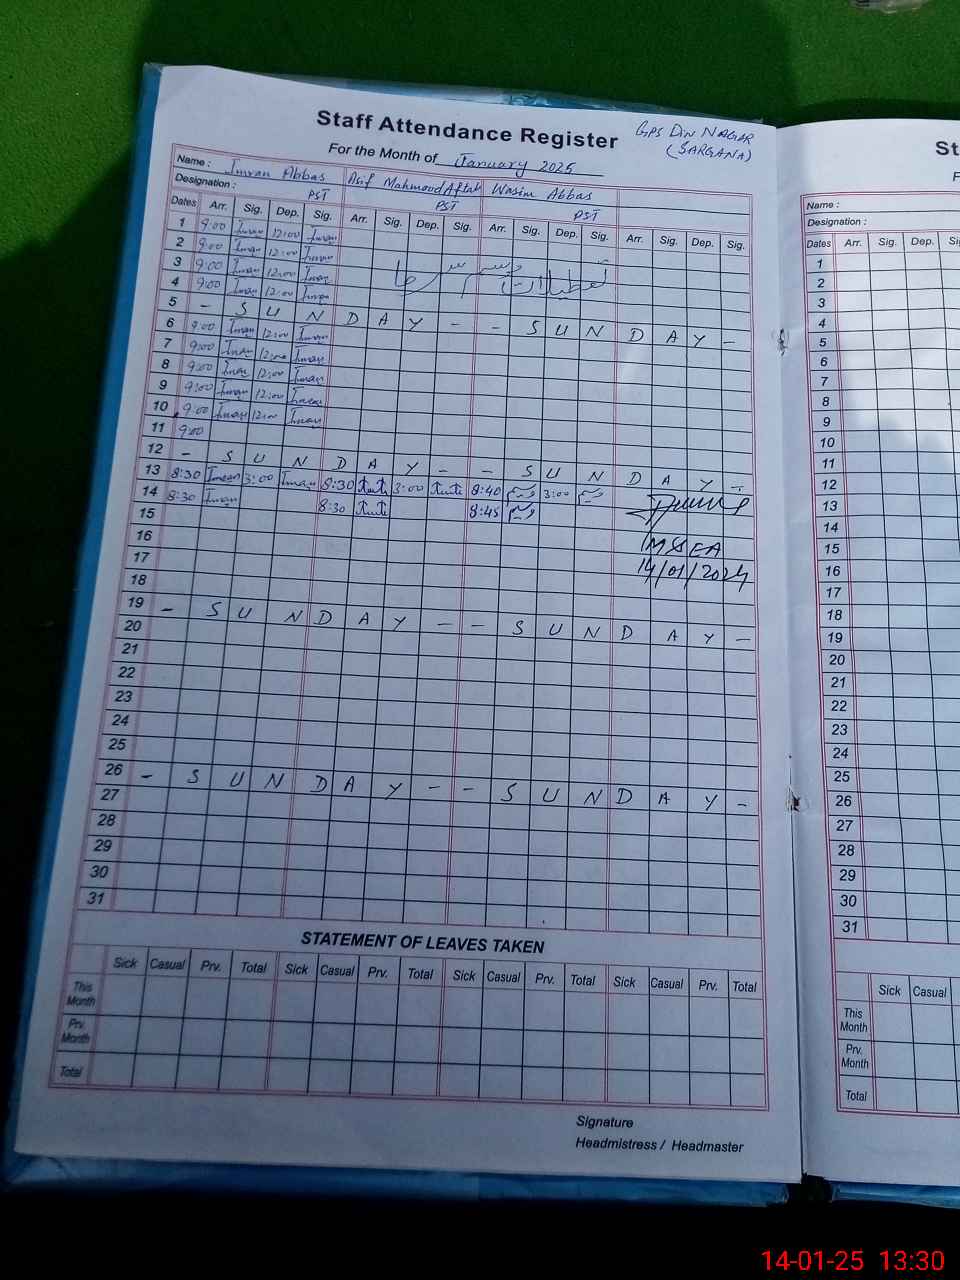 Staff Attendance Register
GPS DIN NAGAR
(SARGANA)
For the Month of January 2025
Name : Imran Abbas Asif Mahmood Aftab Wasim Abbas
Designation : PST PST PST
Dates Arr. Sig. Dep. Sig. Arr. Sig. Dep. Sig. Arr. Sig. Dep. Sig. Arr. Sig. Dep. Sig.
1 9:00 Imran 12:00 Imran
2 9:00 Imran 12:00 Imran
3 9:00 Imran 12:00 Imran
تعطیلات موسم سرما
4 9:00 Imran 12:00 Imran
5 - S U N D A Y - - S U N D A Y -
6 9:00 Imran 12:00 Imran
7 9:00 Imran 12:00 Imran
8 9:00 Imran 12:00 Imran
9 9:00 Imran 12:00 Imran
10 9:00 Imran 12:00 Imran
11 9:00
12 - S U N D A Y - - S U N D A Y -
13 8:30 Imran 3:00 Imran 8:30 3:00 8:40 وسیم 3:00 وسیم
14 8:30 Imran 8:30 8:45 وسیم
15
16
MSEA
17
14/01/2024
18
19 - S U N D A Y - - S U N D A Y -
20
21
22
23
24
25
26 - S U N D A Y - - S U N D A Y -
27
28
29
30
31
STATEMENT OF LEAVES TAKEN
Sick Casual Prv. Total Sick Casual Prv. Total Sick Casual Prv. Total Sick Casual Prv. Total
This
Month
Prv.
Month
Total
Signature
Headmistress / Headmaster
St
F
Name :
Designation :
Dates Arr. Sig. Dep. Sig
1
2
3
4
5
6
7
8
9
10
11
12
13
14
15
16
17
18
19
20
21
22
23
24
25
26
27
28
29
30
31
Sick Casual
This
Month
Prv.
Month
Total
14-01-25 13:30